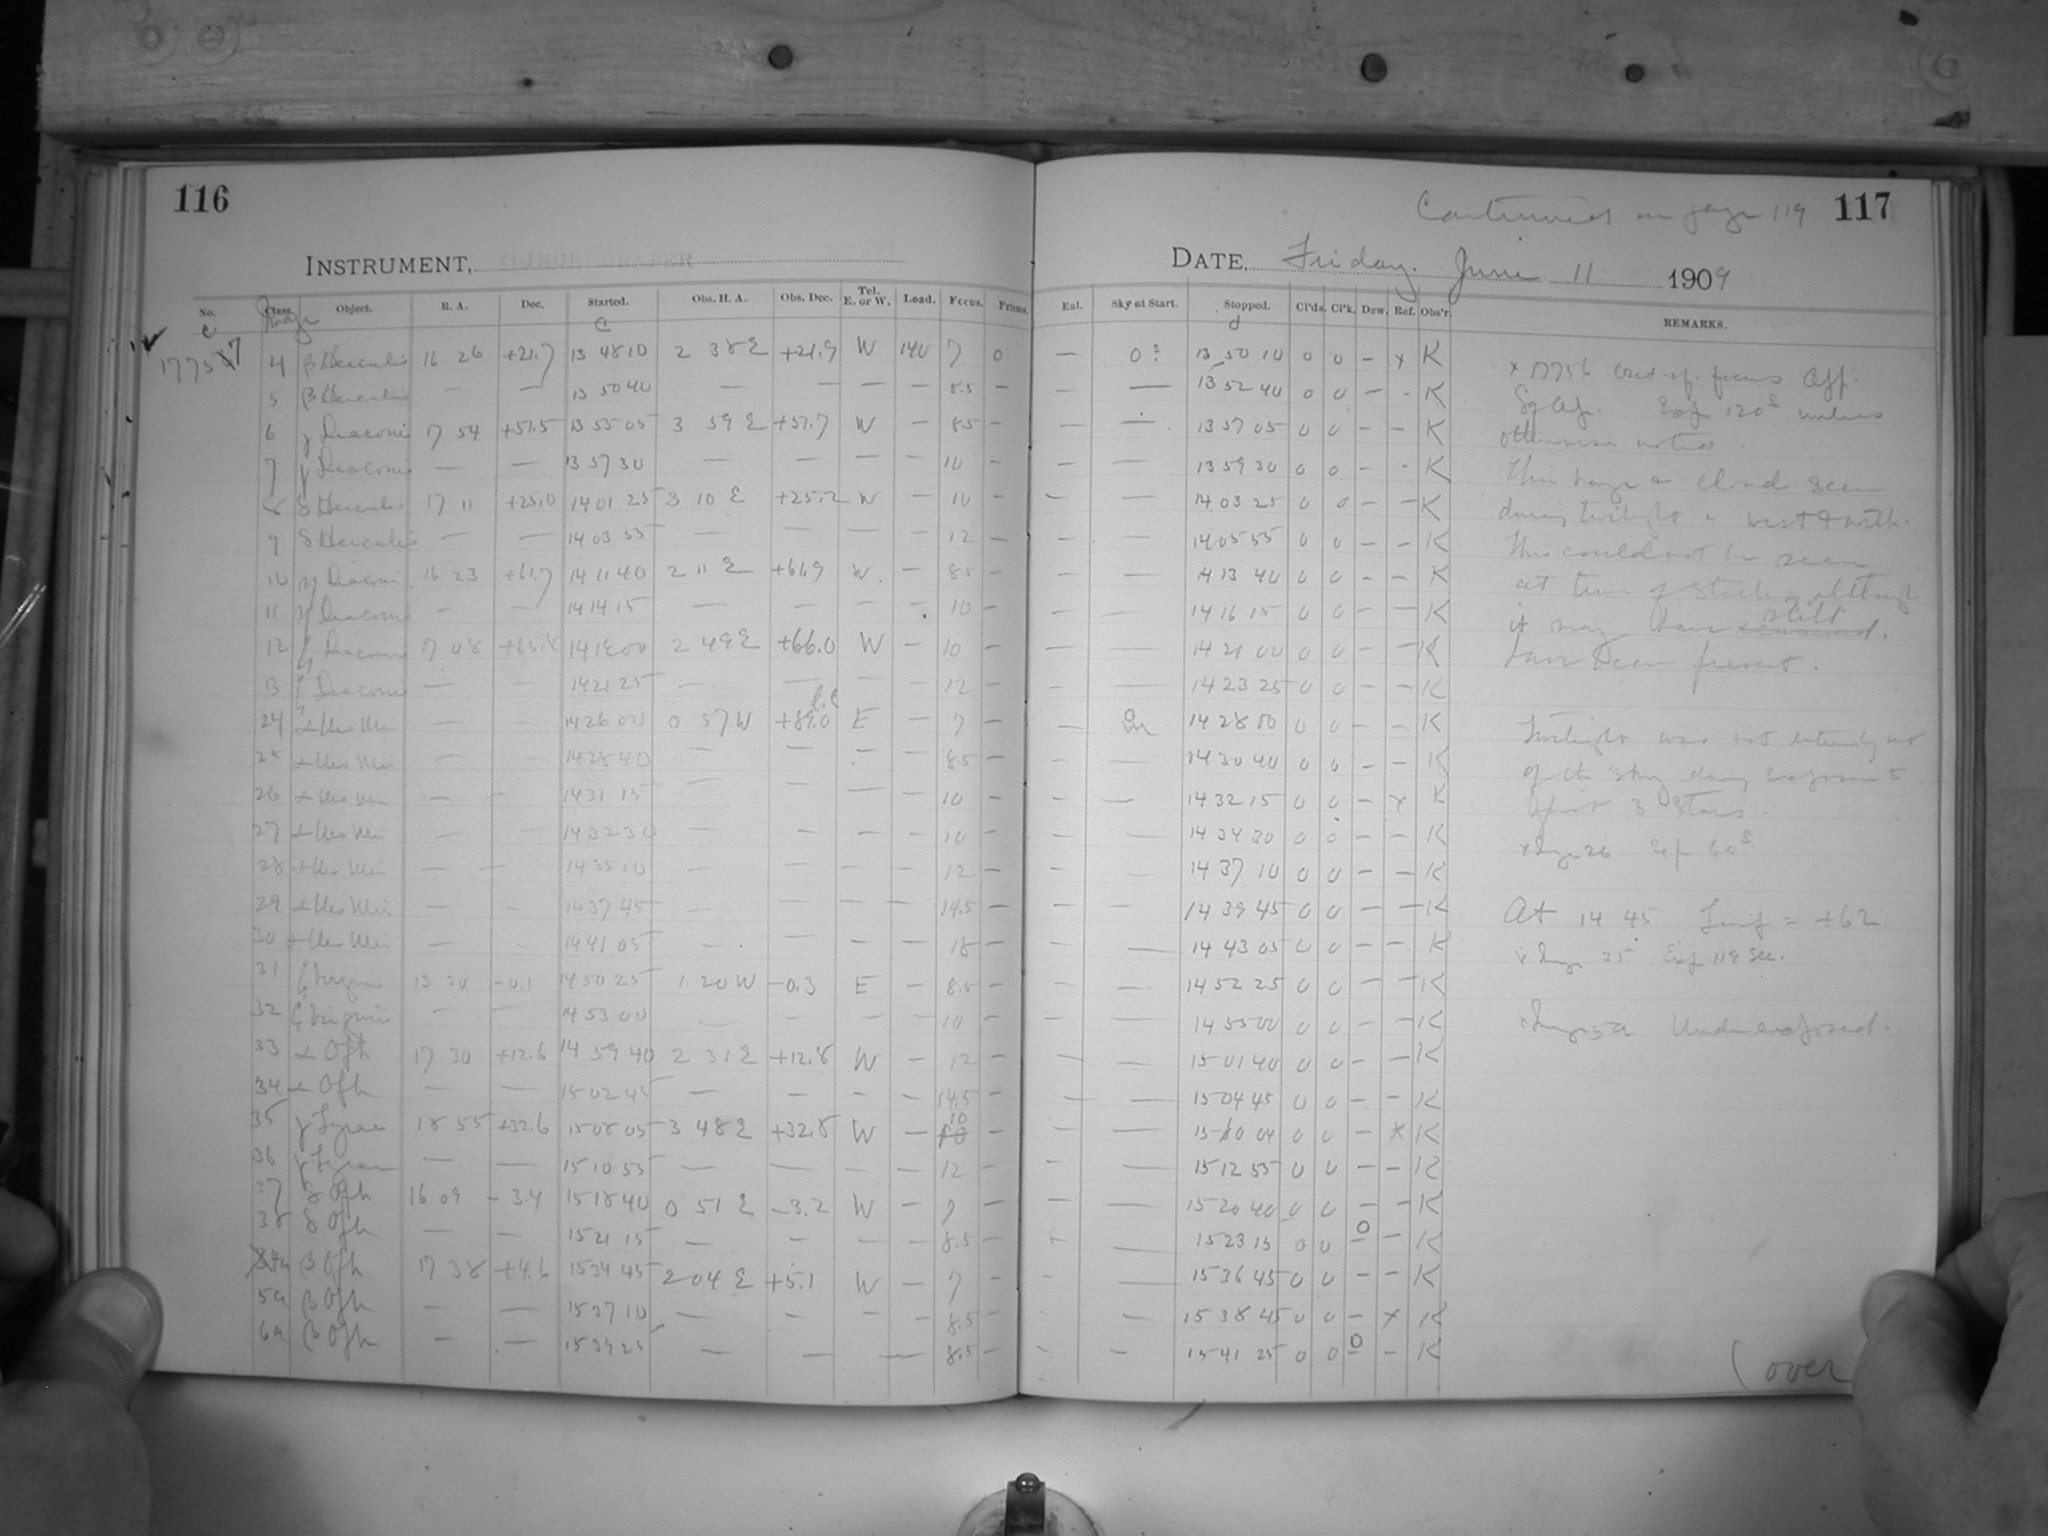 116
INSTRUMENT, 11-INCH DRAPER
No. Class. Object. R. A. Dec. Started. Obs. H. A. Obs. Dec. Tel. E. or W. Load. Focus. Prisms.
C Image C
4 β Herculis 16 26 +21.7 13 48 10 2 38 E +21.9 W 140 7 0
5 β Herculis — — 13 50 40 — — — — 8.5 —
6 γ Draconis 17 54 +51.5 13 55 05 3 59 E +51.7 W — 8.5 —
7 γ Draconis — — 13 57 30 — — — — 10 —
8 δ Herculis 17 11 +25.0 14 01 25 3 10 E +25.2 W — 10 —
9 δ Herculis — — 14 03 55 — — — — 12 —
10 η Draconis 16 23 +61.7 14 11 40 2 11 E +61.9 W. — 8.5 —
11 η Draconis — — 14 14 15 — — — — 10 —
12 ζ Draconis 17 08 +65.8 14 19 00 2 49 E +66.0 W — 10 —
13 ζ Draconis — — 14 21 25 — — — — 12 —
24 α Urs Min — — 14 26 00 0 57 W +89.0 E — 7 —
25 α Urs Min — 14 28 40 — — — — 8.5 —
26 α Urs Min — — 14 31 15 — — — — 10 —
27 α Urs Min — — 14 32 30 — — — — 10 —
28 α Urs Min — — 14 35 10 — — — — 12 —
29 α Urs Min — — 14 37 45 — — — — 14.5 —
30 α Urs Min — — 14 41 05 — — — — 18 —
31 ζ Virginis 13 30 -0.1 14 50 25 1 20 W -0.3 E — 8.5 —
32 ζ Virginis — — 14 53 00 — — — — 10 —
33 α Oph 17 30 +12.6 14 59 40 2 31 E +12.8 W — 12 —
34 α Oph — — 15 02 45 — — — — 14.5 —
35 γ Lyrae 18 55 +32.6 15 08 05 3 48 E +32.8 W — 10 —
36 γ Lyrae — — 15 10 55 — — — — 12 —
37 δ Oph 16 09 -3.4 15 18 40 0 51 E -3.2 W — 7 —
38 δ Oph — — 15 21 15 — — — — 8.5 —
4a β Oph 17 38 +4.6 15 34 45 2 04 E +5.1 W — 7 —
5a β Oph — — 15 37 10 — — — — 8.5 —
6a β Oph — — 15 39 25 — — — — 8.5 —
Continued on page 119 117
DATE, Friday. June 11 1909
Eal. Sky at Start. Stopped. Cl'ds. Cl'k. Dew. Ref. Obs'r. REMARKS.
d
— 0? 13 50 10 0 0 — x K
— — 13 52 40 0 0 — - K
— — 13 57 05 0 0 — — K
— — 13 59 30 0 0 — - K
— — 14 03 25 0 0 — — K
— — 14 05 55 0 0 — — K
— — 14 13 40 0 0 — — K
— — 14 16 15 0 0 — — K
— — 14 21 00 0 0 — — K
— — 14 23 25 0 0 — — K
— 14 28 00 0 0 — — K
— — 14 30 40 0 0 — — K
— — 14 32 15 0 0 — x K
— — 14 34 30 0 0 — — K
— — 14 37 10 0 0 — — K
— — 14 39 45 0 0 — — K
— — 14 43 05 0 0 — — K
— — 14 52 25 0 0 — — K
— — 14 55 00 0 0 — — K
— — 15 01 40 0 0 — — K
— — 15 04 45 0 0 — — K
— — 15 10 04 0 0 — x K
— — 15 12 55 0 0 — — K
— — 15 20 40 0 0 — — K
— — 15 23 15 0 0 0 — K
— — 15 36 45 0 0 — — K
— 15 38 45 0 0 — x K
- — 15 41 25 0 0 0 - K
x 17756 out of focus
Exp 120s unless
otherwise noted.
Thin haze or cloud seen
during twilight in west & north.
This could not be seen
at time of starting although
it may have still
have been present.
Twilight was not entirely out
of the sky during exposures
first 3 stars.
x Image 26 Exp 60s
At 14 45 Temp = +62.
x Image 35 Exp 119 sec.
x Image 5a Underexposed.
(over